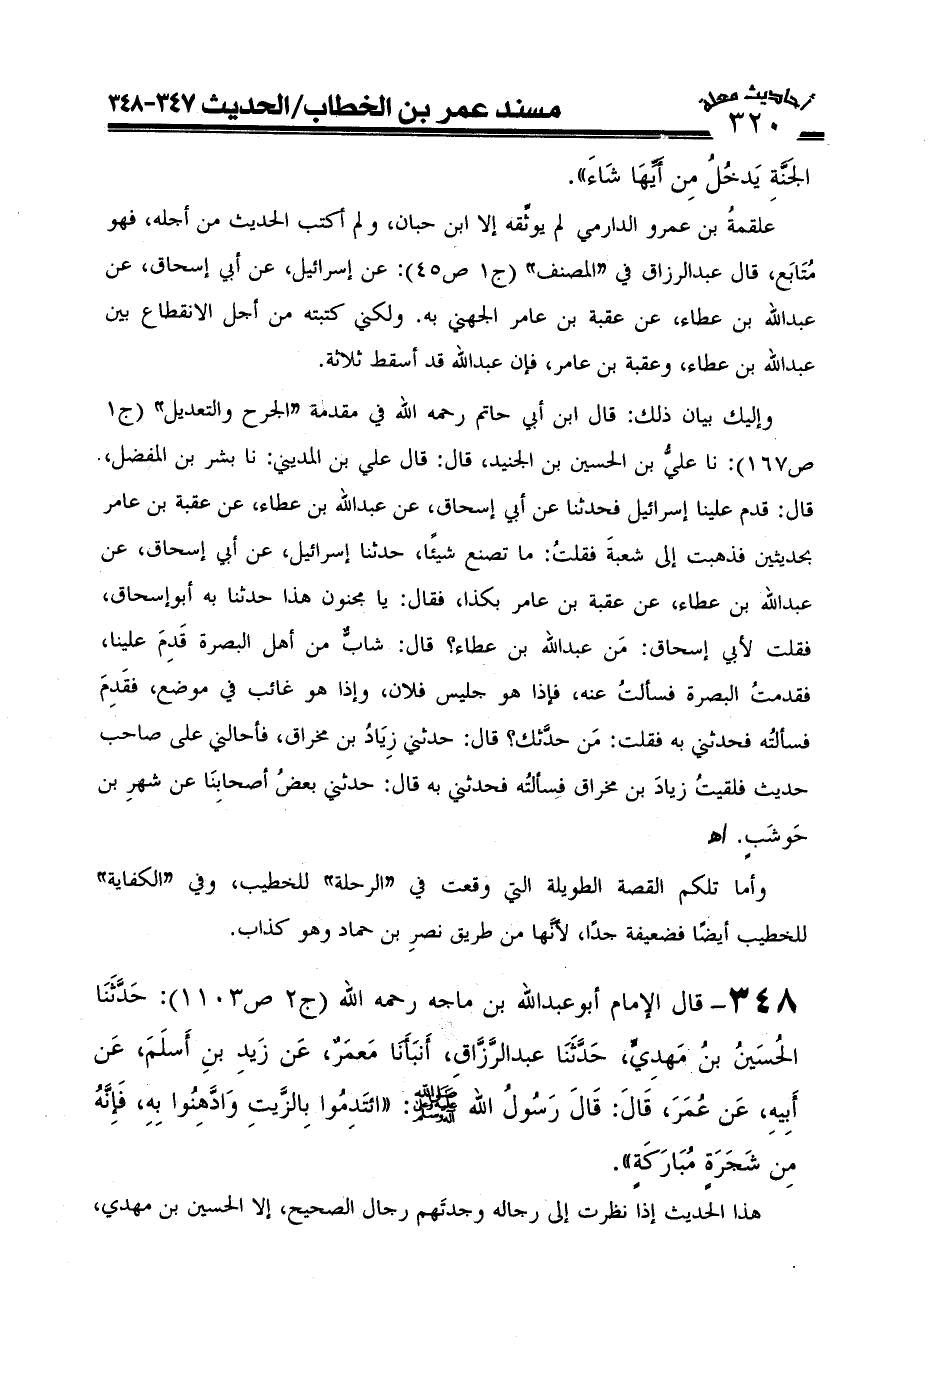 أحاديث معلة
٣٢٠
مسند عمر بن الخطاب/الحديث ٣٤٧-٣٤٨
الجَنَّةِ يَدخُلُ مِن أَيِّهَا شَاءَ».
علقمةُ بن عمرو الدارمي لم يوثّقه إلا ابن حبان، ولم أكتب الحديث من أجله، فهو
مُتَابَع، قال عبدالرزاق في «المصنف» (ج١ ص٤٥): عن إسرائيل، عن أبي إسحاق، عن
عبدالله بن عطاء، عن عقبة بن عامر الجهني به. ولكني كتبته من أجل الانقطاع بين
عبدالله بن عطاء، وعقبة بن عامر، فإن عبدالله قد أسقط ثلاثة.
وإليك بيان ذلك: قال ابن أبي حاتم رحمه الله في مقدمة «الجرح والتعديل» (ج١
ص١٦٧): نا عليُّ بن الحسين بن الجنيد، قال: قال علي بن المديني: نا بشر بن المفضل،
قال: قدم علينا إسرائيل فحدثنا عن أبي إسحاق، عن عبدالله بن عطاء، عن عقبة بن عامر
بحديثين فذهبت إلى شعبةَ فقلتُ: ما تصنع شيئًا، حدثنا إسرائيل، عن أبي إسحاق، عن
عبدالله بن عطاء، عن عقبة بن عامر بكذا، فقال: يا مجنون هذا حدثنا به أبوإسحاق،
فقلت لأبي إسحاق: مَن عبدالله بن عطاء؟ قال: شابٌّ من أهل البصرة قَدِمَ علينا،
فقدمتُ البصرة فسألتُ عنه، فإذا هو جليس فلان، وإذا هو غائب في موضع، فقَدِمَ
فسألتُه فحدثني به فقلت: مَن حدَّثك؟ قال: حدثني زِيَادُ بن مخراق، فأحالني على صاحب
حديث فلقيتُ زيادَ بن مخراق فسألتُه فحدثني به قال: حدثني بعضُ أصحابِنَا عن شهرِ بن
حَوشَبٍ. اﻫ
وأما تلكم القصة الطويلة التي وقعت في «الرحلة» للخطيب، وفي «الكفاية»
للخطيب أيضًا فضعيفة جدًا، لأنَّها من طريق نصرِ بن حماد وهو كذاب.
٣٤٨- قال الإمام أبوعبدالله بن ماجه رحمه الله (ج٢ ص١١٠٣): حَدَّثَنَا
الحُسَينُ بنُ مَهديٍّ، حَدَّثَنَا عبدالرَّزَّاقِ، أَنبَأَنَا مَعمَرٌ، عَن زَيدِ بنِ أَسلَمَ، عَن
أَبِيهِ، عَن عُمَرَ، قَالَ: قَالَ رَسُولُ الله ﷺ: «ائتَدِمُوا بِالزَّيتِ وَادَّهِنُوا بِهِ، فَإِنَّهُ
مِن شَجَرَةٍ مُبَارَكَةٍ».
هذا الحديث إذا نظرت إلى رجاله وجدتَهم رجال الصحيح، إلا الحسين بن مهدي،